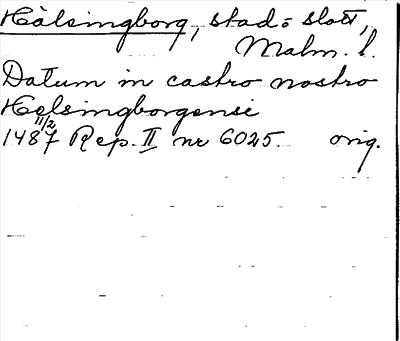 Hälsingborg, stad = slott,
Malm. l.
Datum in castro nostro
Helsingborgensi
1487 11/2 Rep. II nr 6025. orig.